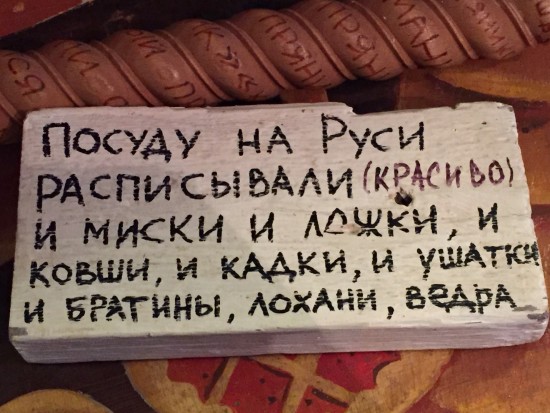 ПОСУДУ НА РУСИ
РАСПИСЫВАЛИ (КРАСИВО)
И МИСКИ И ЛОЖКИ, И
КОВШИ, И КАДКИ, И УШАТКИ
И БРАТИНЫ, ЛОХАНИ, ВЕДРА